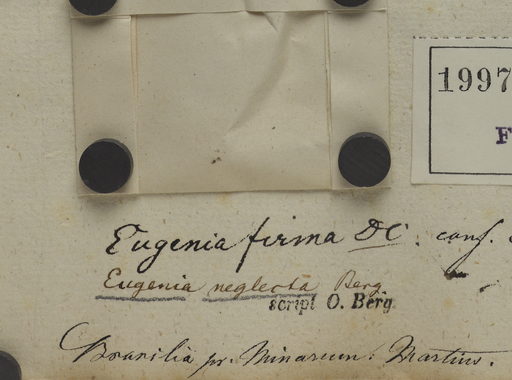 1997
F
Eugenia firma DC. conf.
Eugenia neglecta Berg
script O. Berg
Brasilia pr. Minarum: Martius.